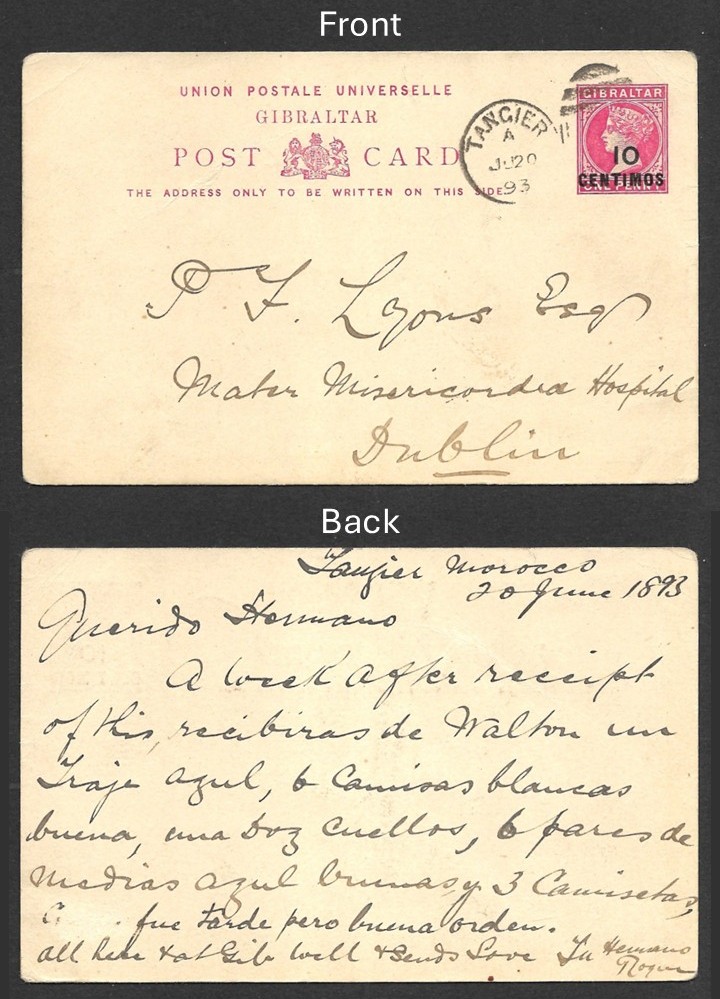 Front
UNION POSTALE UNIVERSELLE
GIBRALTAR
POST CARD
THE ADDRESS ONLY TO BE WRITTEN ON THIS SIDE.
TANGIER
A
JU 20
93
GIBRALTAR
10
CENTIMOS
ONE PENNY
P F. Lyons Esq
Mater Misericordiae Hospital
Dublin
Back
Tangier Morocco
20 June 1893
Querido Hermano
A week after receipt
of this, recibiras de Walton un
Traje azul, 6 Camisas blancas
buena, una Doz Cuellos, 6 pares de
Medias azul buenas y 3 Camisetas,
fue tarde pero buena orden.
all here & at Gib well & sends Love Tu Hermano